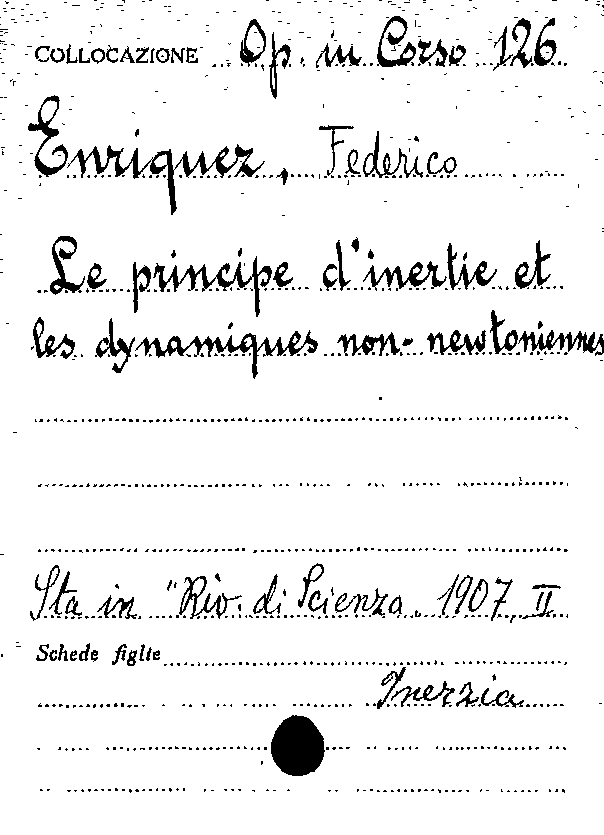 COLLOCAZIONE Op. in Corso 126
Enriquez, Federico
Le principe d'inertie et
les dynamiques non-newtoniennes
Sta in "Riv. di Scienza. 1907, II
Schede figlie
Inerzia